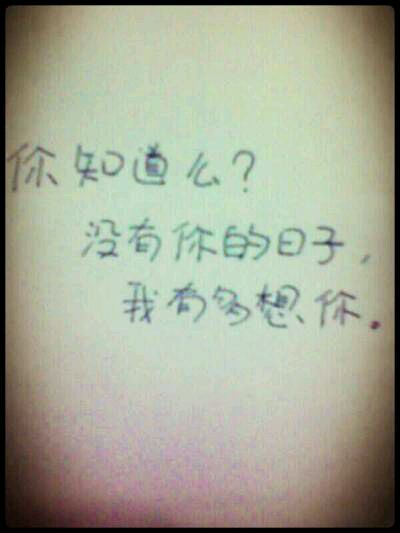 你知道么?
没有你的日子,
我有多想你.